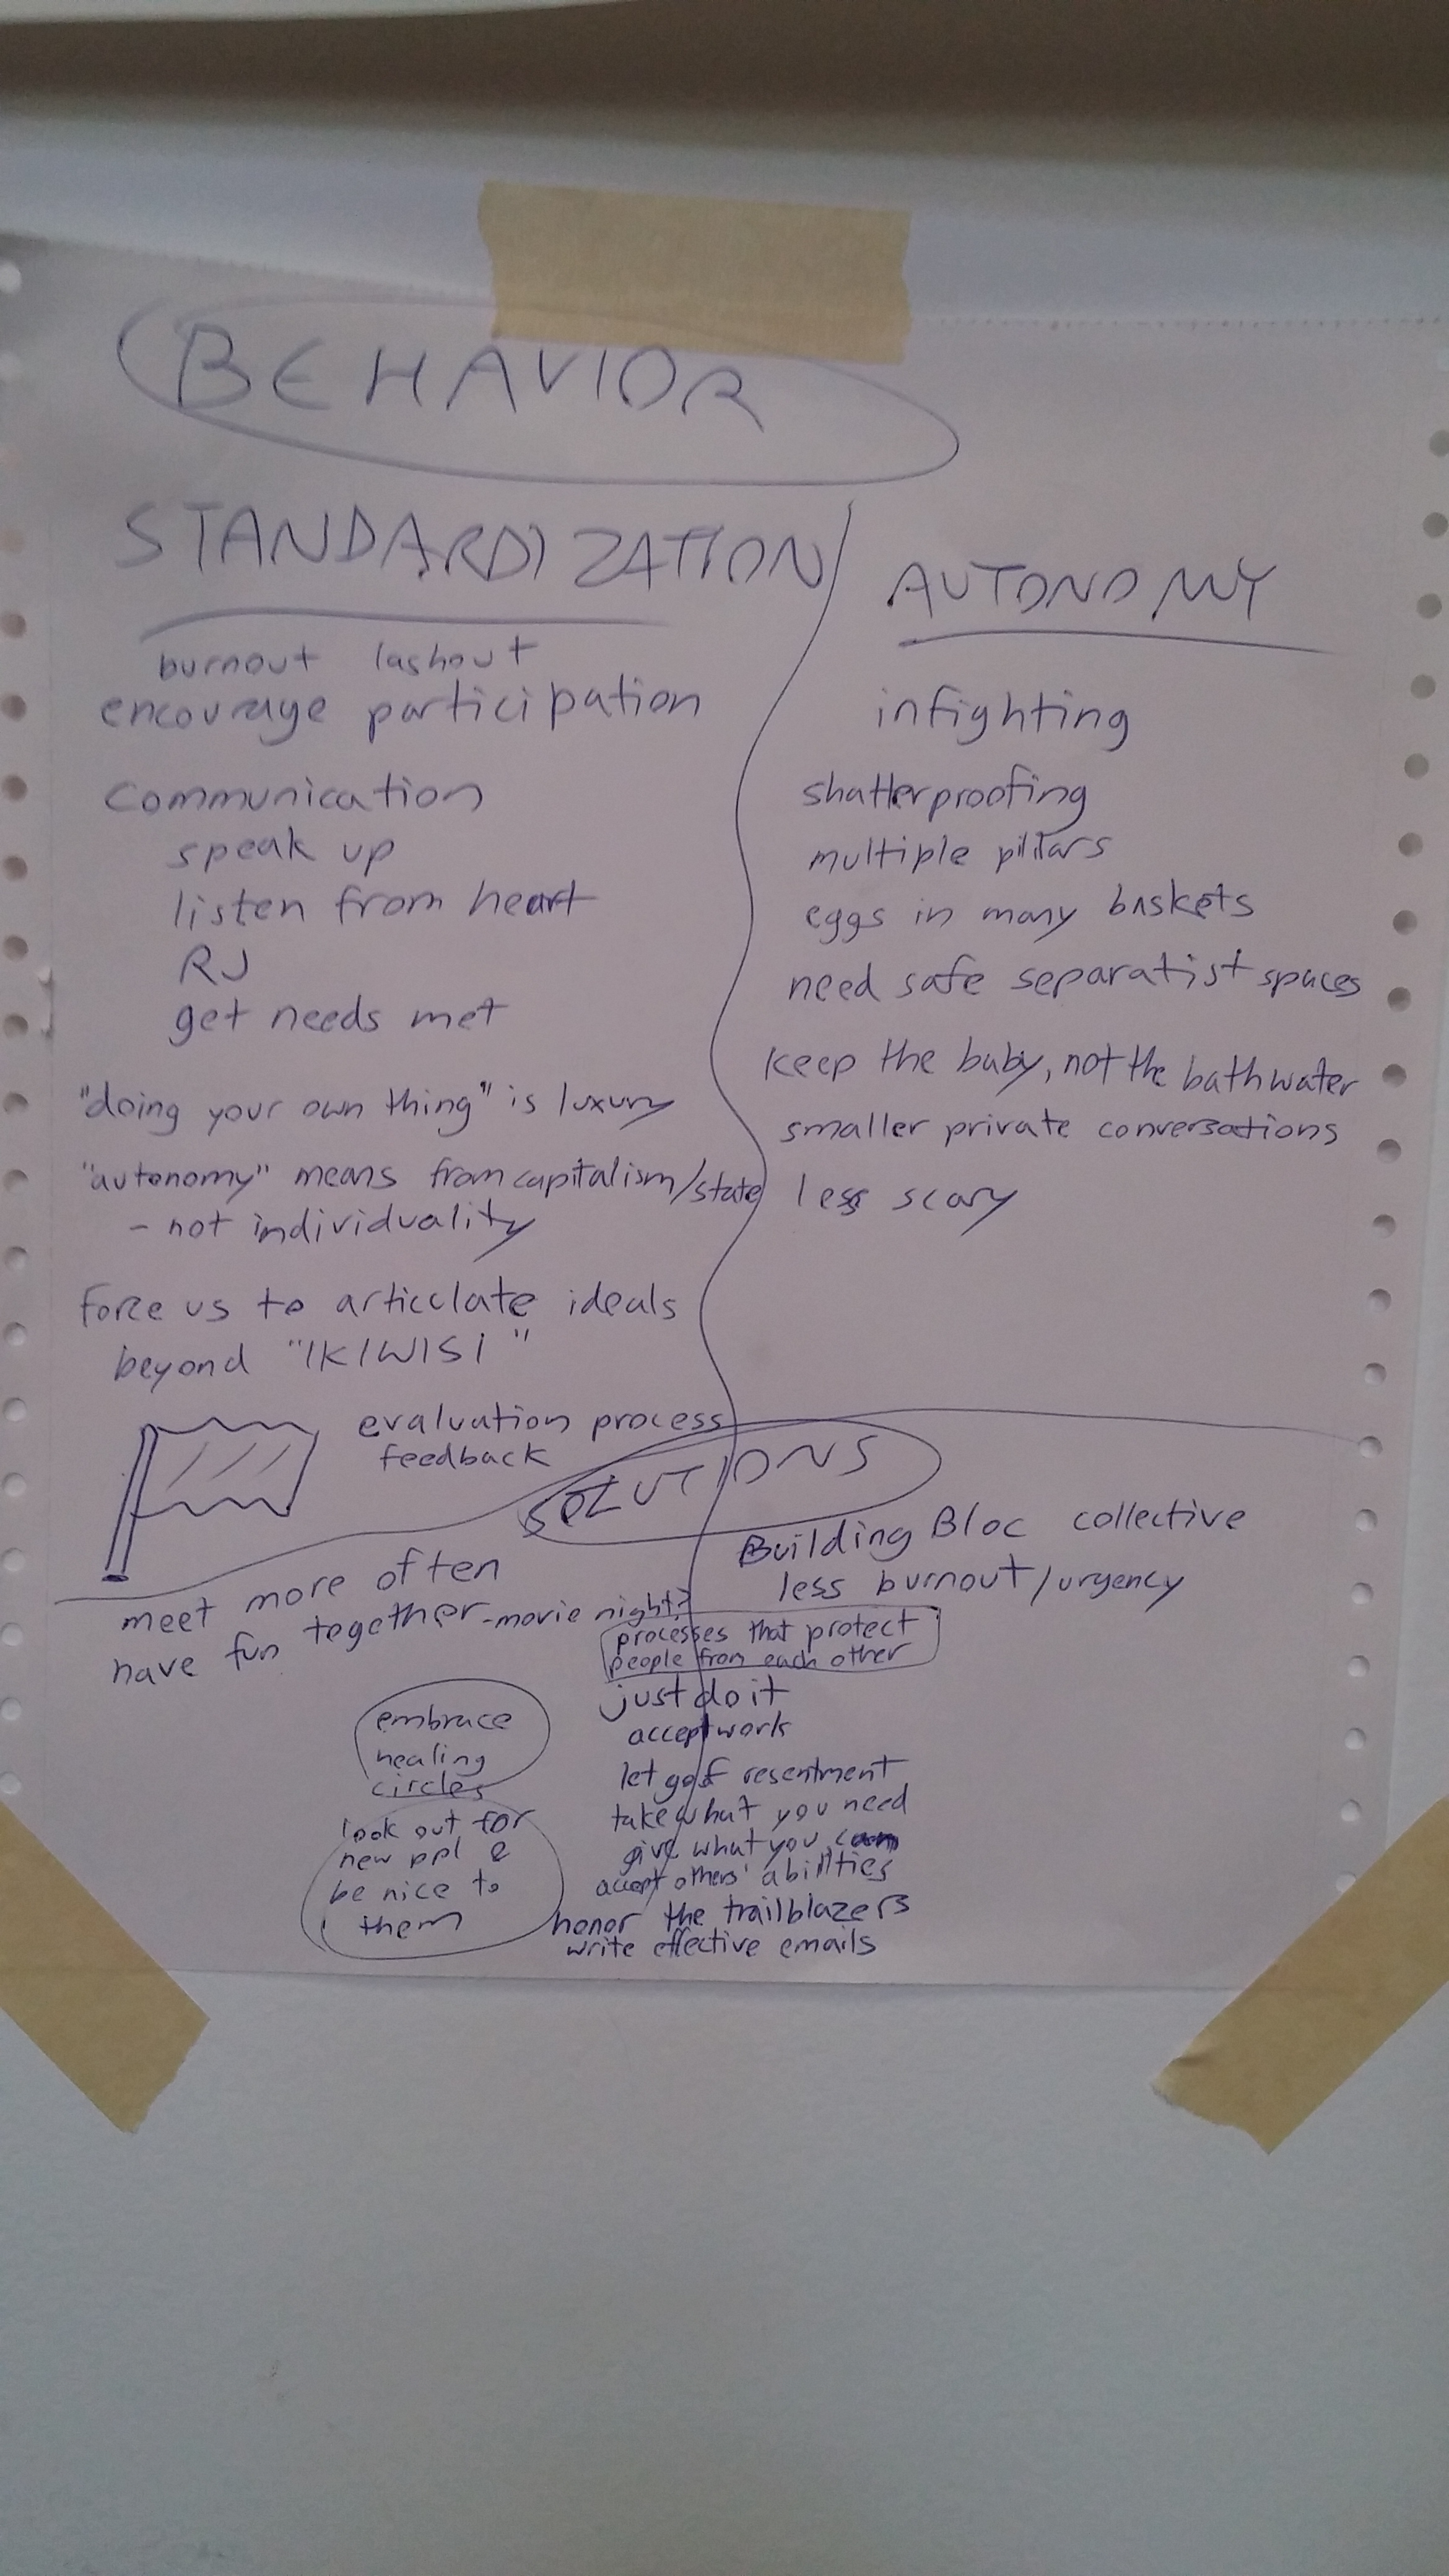 BEHAVIOR
STANDARDIZATION
burnout lashout
encourage participation
communication
speak up
listen from heart
RJ
get needs met
"doing your own thing" is luxury
"autonomy" means from capitalism/state
- not individuality
force us to articulate ideals
beyond "IKIWISI"
evaluation process
feedback
AUTONOMY
infighting
shatterproofing
multiple pillars
eggs in many baskets
need safe separatist spaces
keep the baby, not the bathwater
smaller private conversations
less scary
SOLUTIONS
meet more often
have fun together - movie night?
embrace
healing
circles
look out for
new ppl &
be nice to
them
Building Bloc collective
less burnout/urgency
processes that protect
people from each other
just do it
accept work
let go of resentment
take what you need
give what you can
accept others' abilities
honor the trailblazers
write effective emails